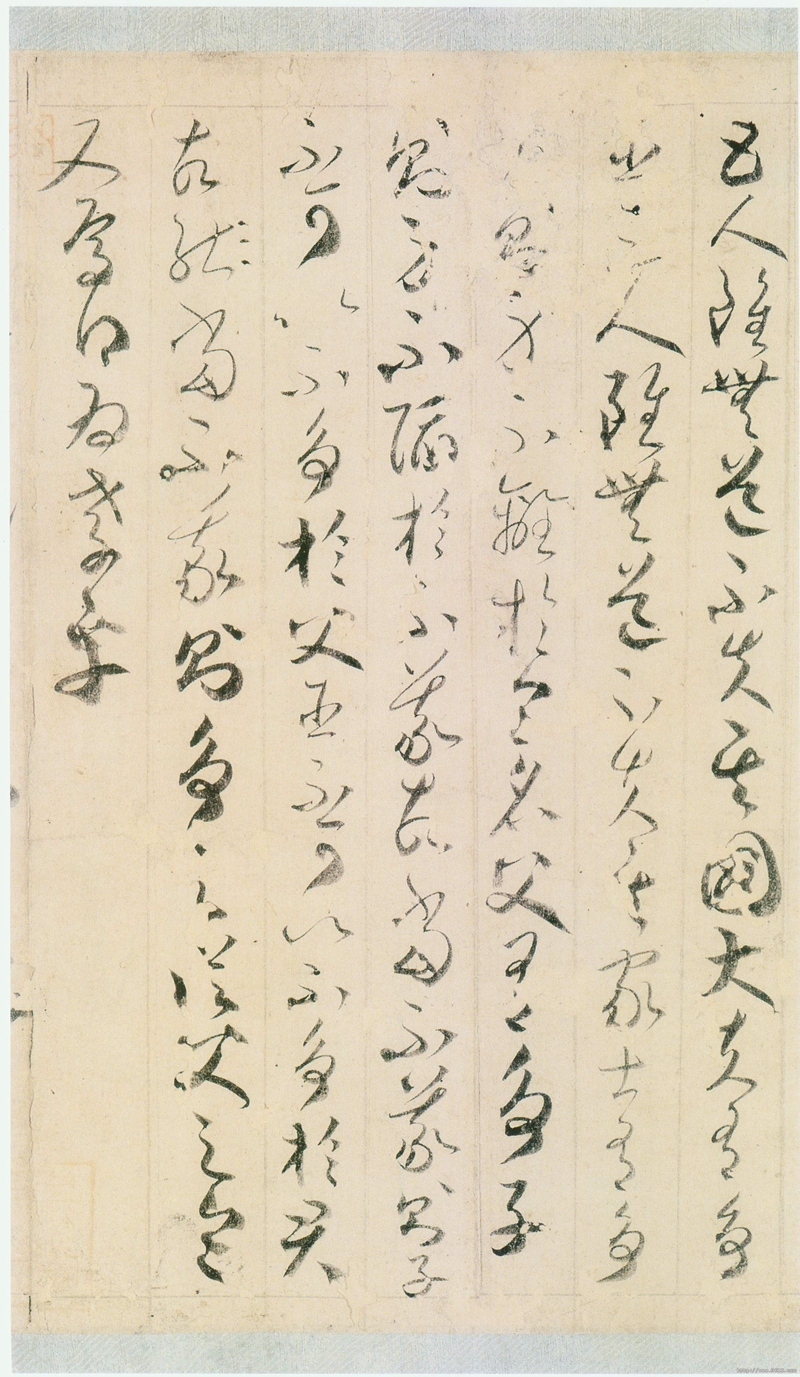 五人雖無道不失其國大夫有爭
臣三人雖無道不失其家士有爭
友則身不離於令名父有爭子
則身不陷於不義故當不義則子
不可以不爭於父臣不可以不爭於君
故當不義則爭之從父之令
又焉得為孝乎